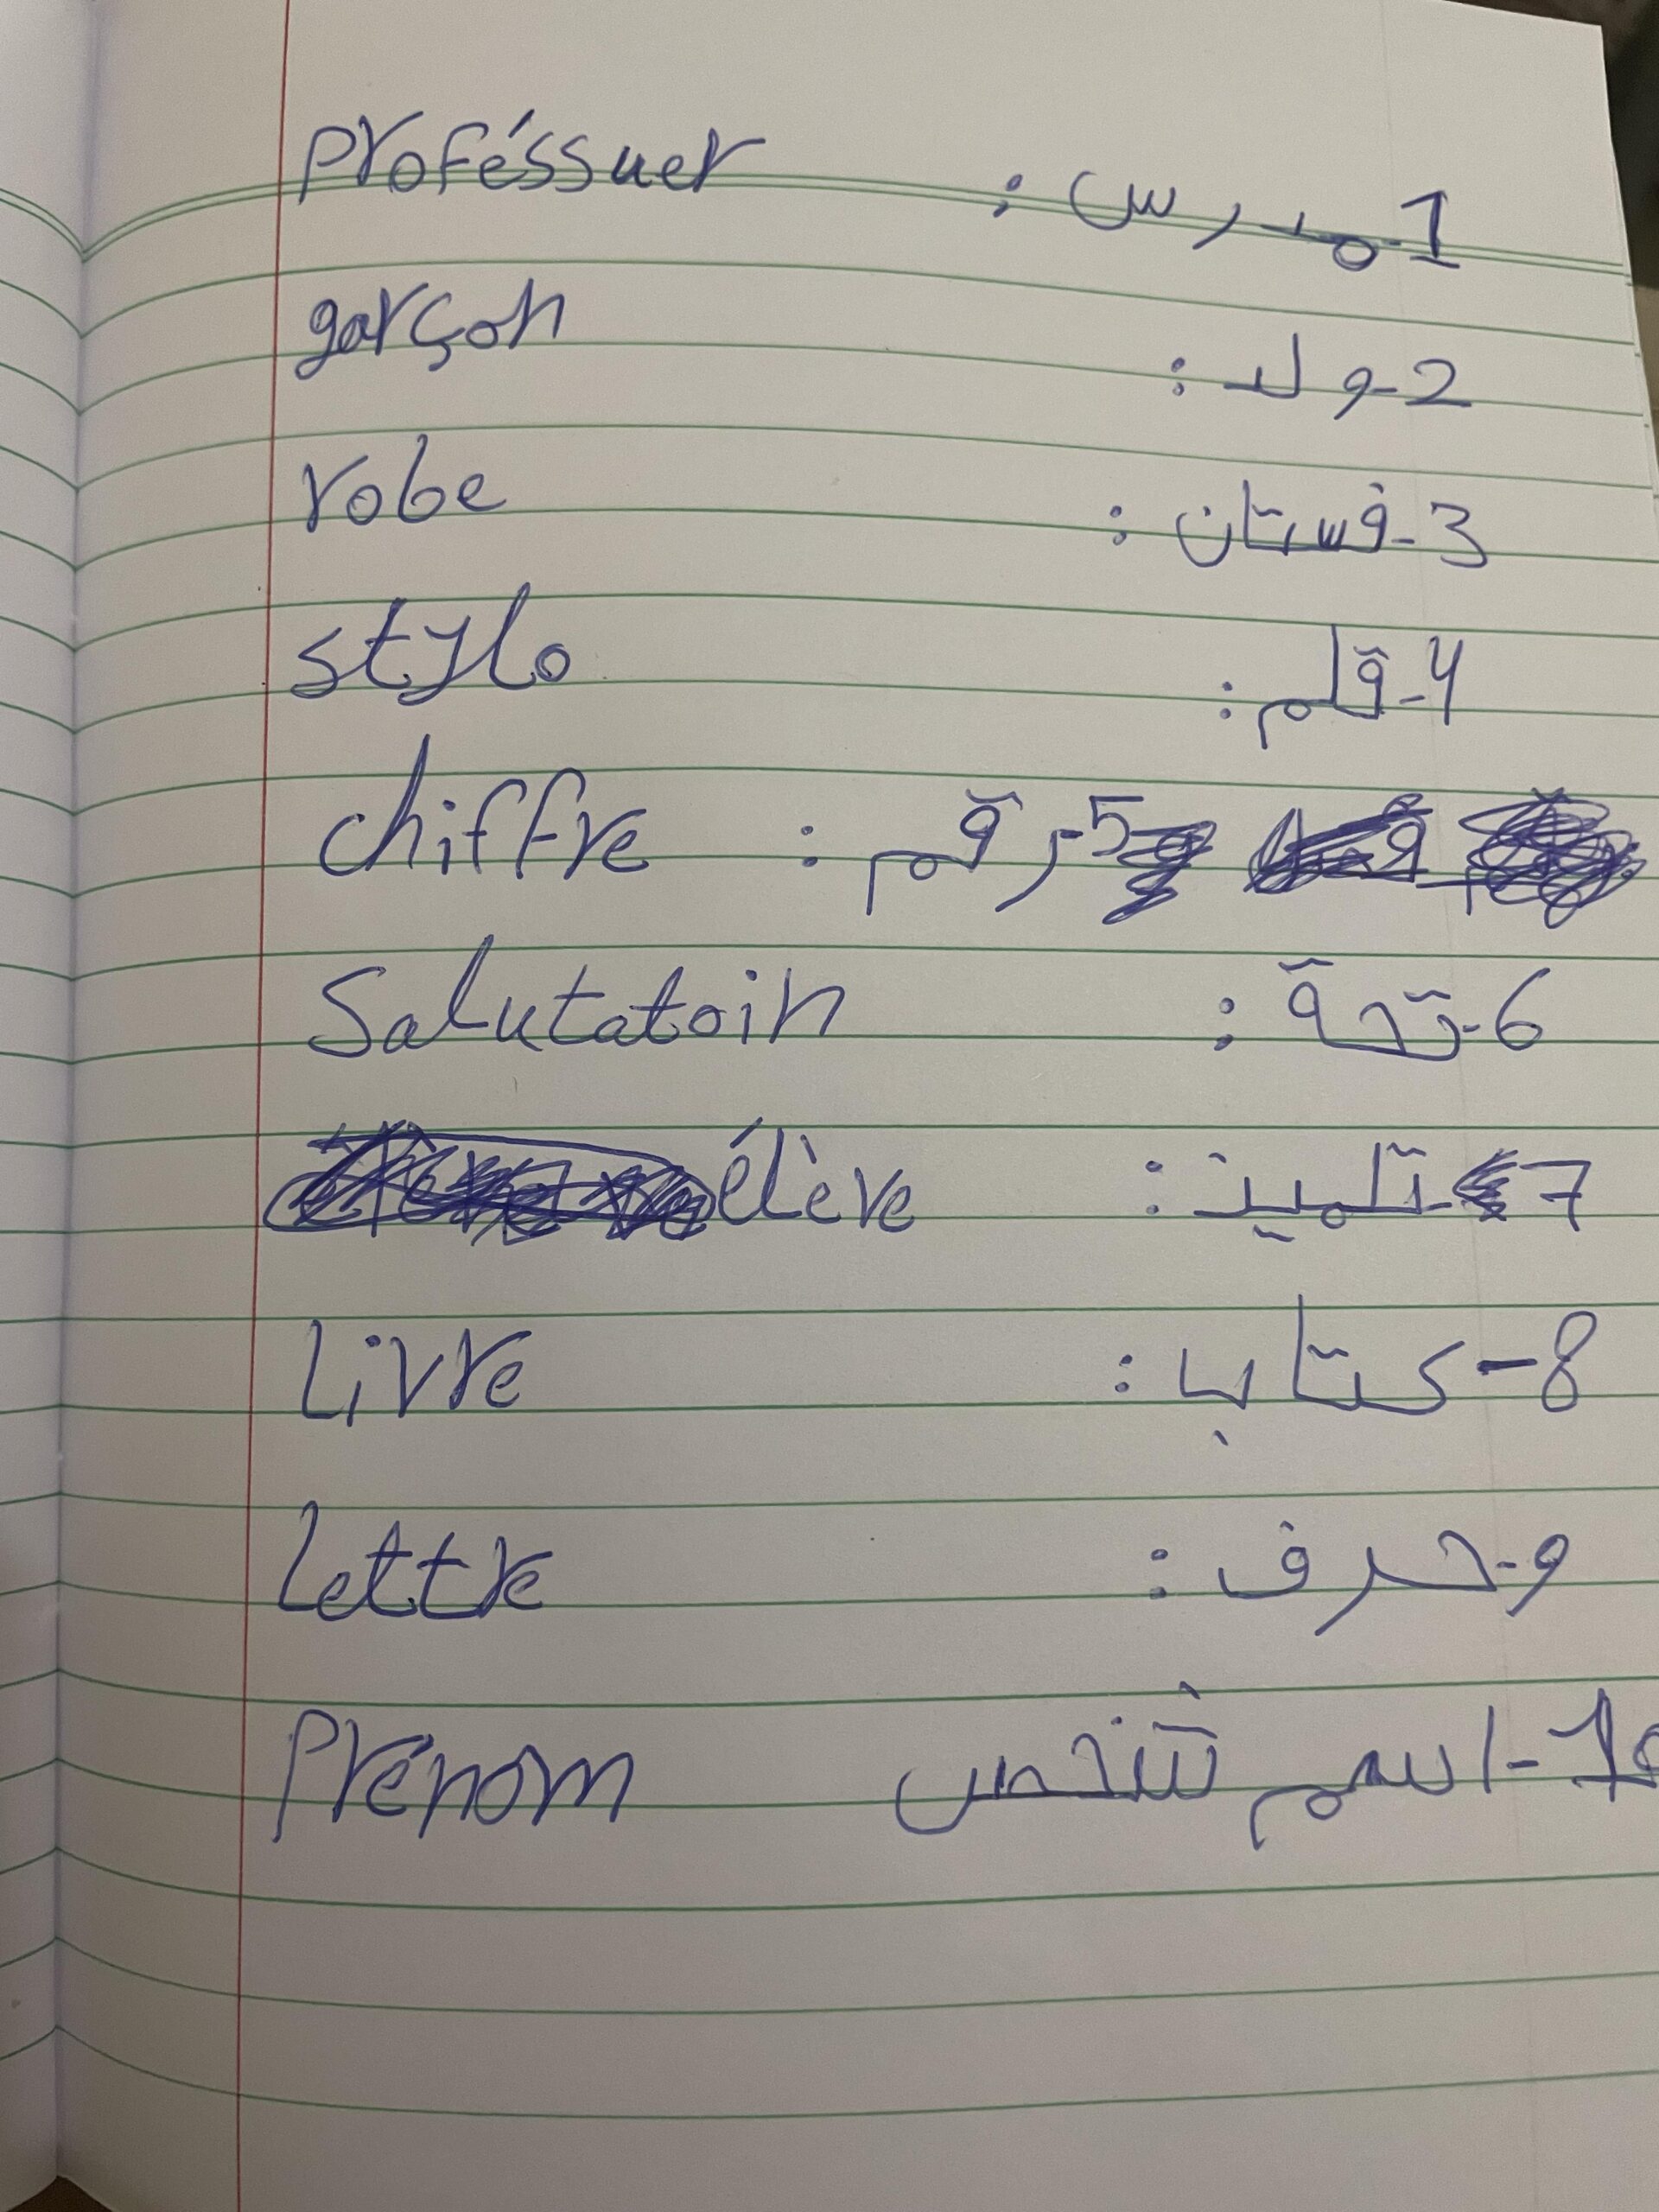 1-مدرس : Proféssuer
2-ولد : garçon
3-فستان : robe
4-قلم : stylo
5-رقم : chiffre
6-تحة : Salutatoin
7-تلميذ : élève
8-كتاب : Livre
9-حرف : Lettre
10-اسم شخص Prénom